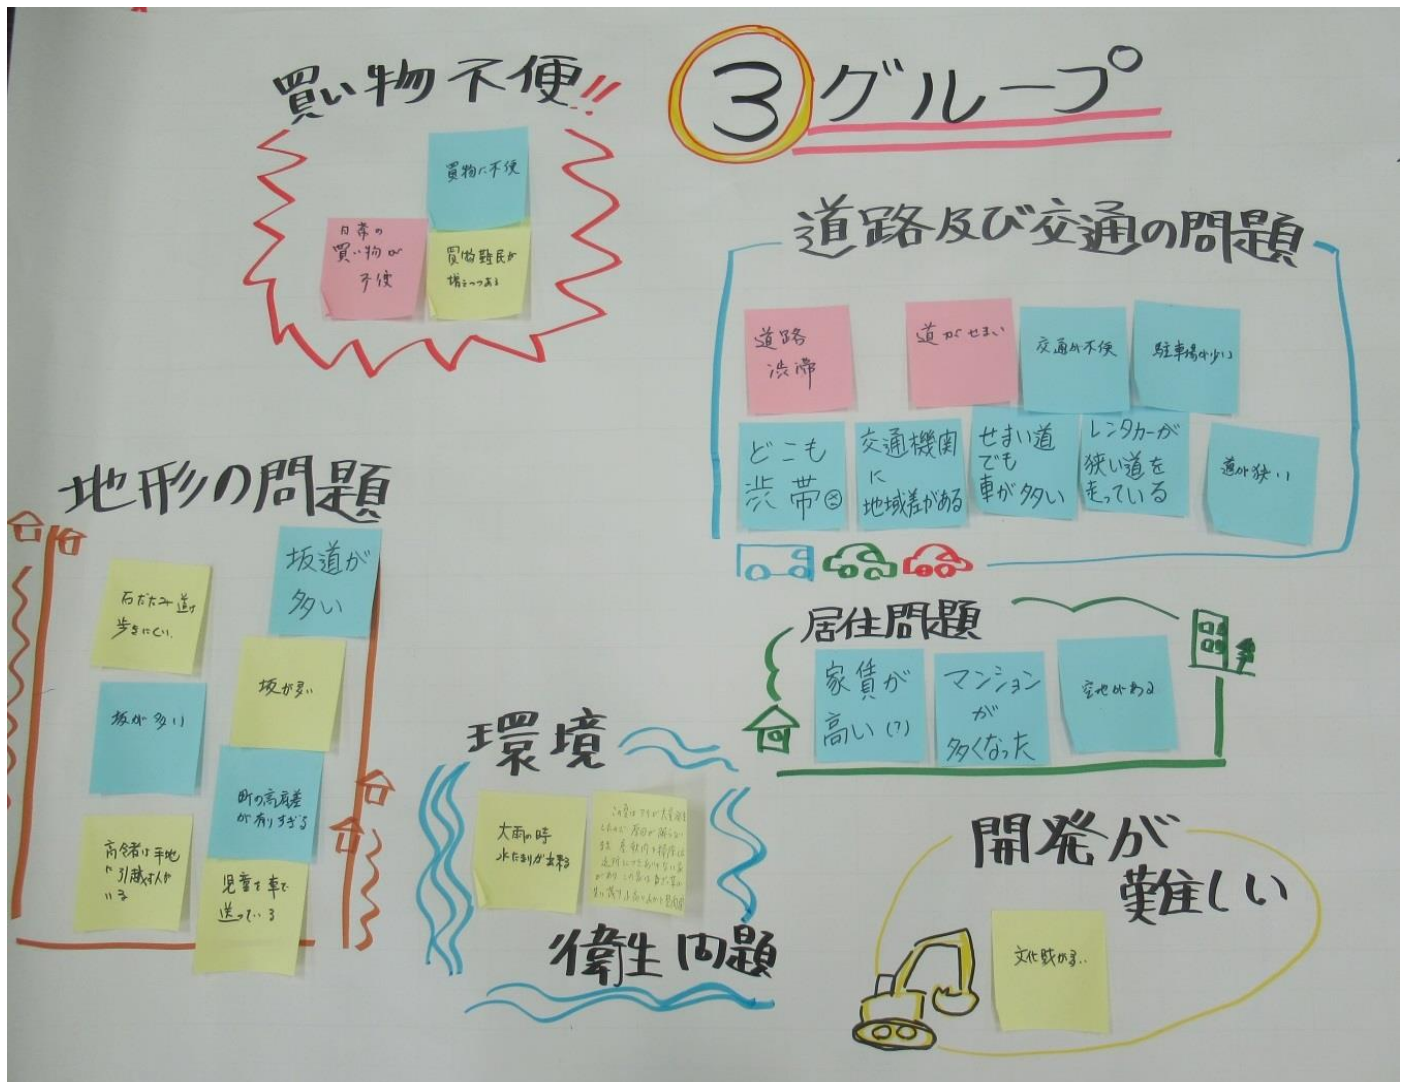 買い物不便!!
買物に不便
日常の
買い物が
不便
買物難民が
増えつつある
③グループ
道路及び交通の問題
道路
渋滞
道がせまい
交通が不便
駐車場が少い
どこも
渋帯
交通機関
に
地域差がある
せまい道
でも
車が多い
レンタカーが
狭い道を
走っている
道が狭い
地形の問題
坂道が
多い
石だたみ道は
歩きにくい
坂が多い
坂が多い
町の高底差
が有りすぎる
高令者は平地
に引越す人が
いる
児童を車で
送っている
居住問題
家賃が
高い(?)
マンション
が
多くなった
空地がある
環境
大雨の時
水たまりが出来る
衛生問題
開発が
難しい
文化財がある